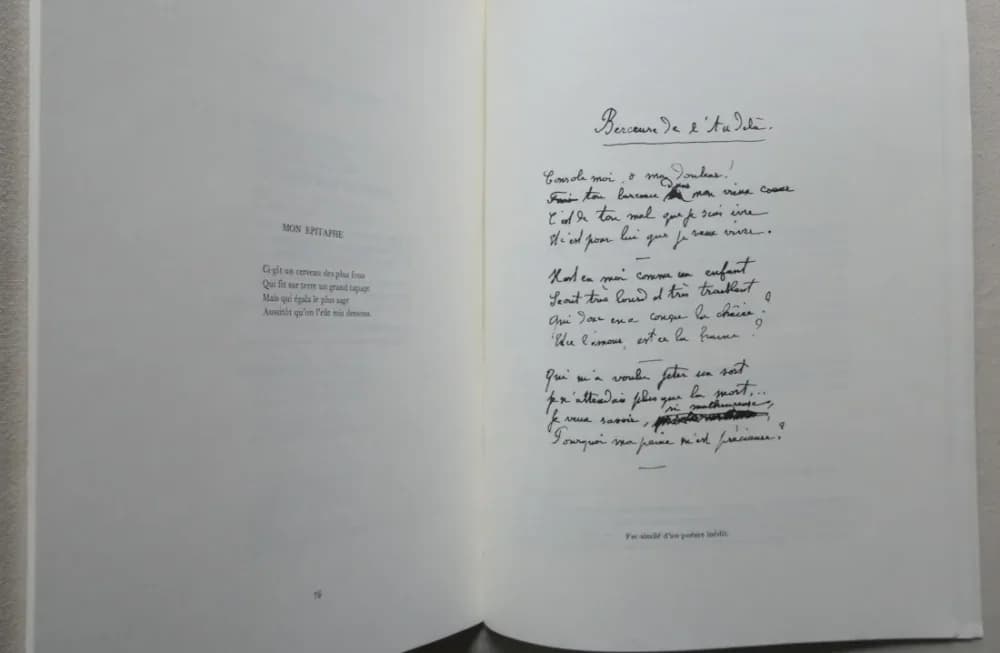 MON EPITAPHE
Ci-gît un cerveau des plus fous
Qui fit sur terre un grand tapage
Mais qui égala le plus sage
Aussitôt qu'on l'eût mis dessous.
76
Berceuse de l'Au Delà.
Console moi, ô ma douleur!
ton berceau dans mon vieux coeur
C'est de ton mal que je suis ivre
Et c'est pour lui que je veux vivre.
en moi comme un enfant
très lourd et très troublant
Qui donc en a conçu la chaine?
Est ce l'amour, est ce la haine?
Qui m'a voulu jeter un sort
Je n'attendais plus que la mort...
Je veux savoir, si malheureuse,
Pourquoi ma peine m'est précieuse?
Fac-similé d'un poème inédit.